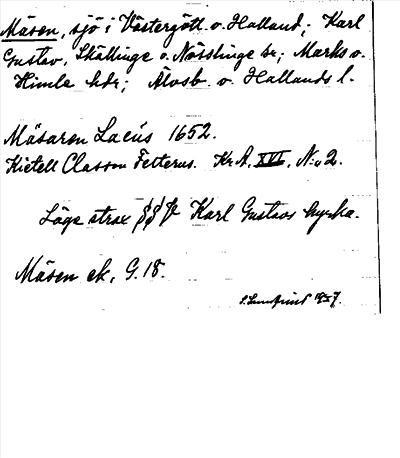 Mäsen, sjö i Västergötl. o. Halland; Karl
Gustav, Skällinge o. Nösslinge sr; Marks o.
Himle hdr; Älvsb o. Hallands l.
Mäsaren Lacus 1652.
Kietell Classon Felterus. Kr. A. XVI, N:o 2.
Läge strax Karl Gustavs kyrka.
Mäsen ek, G. 18.
1937.